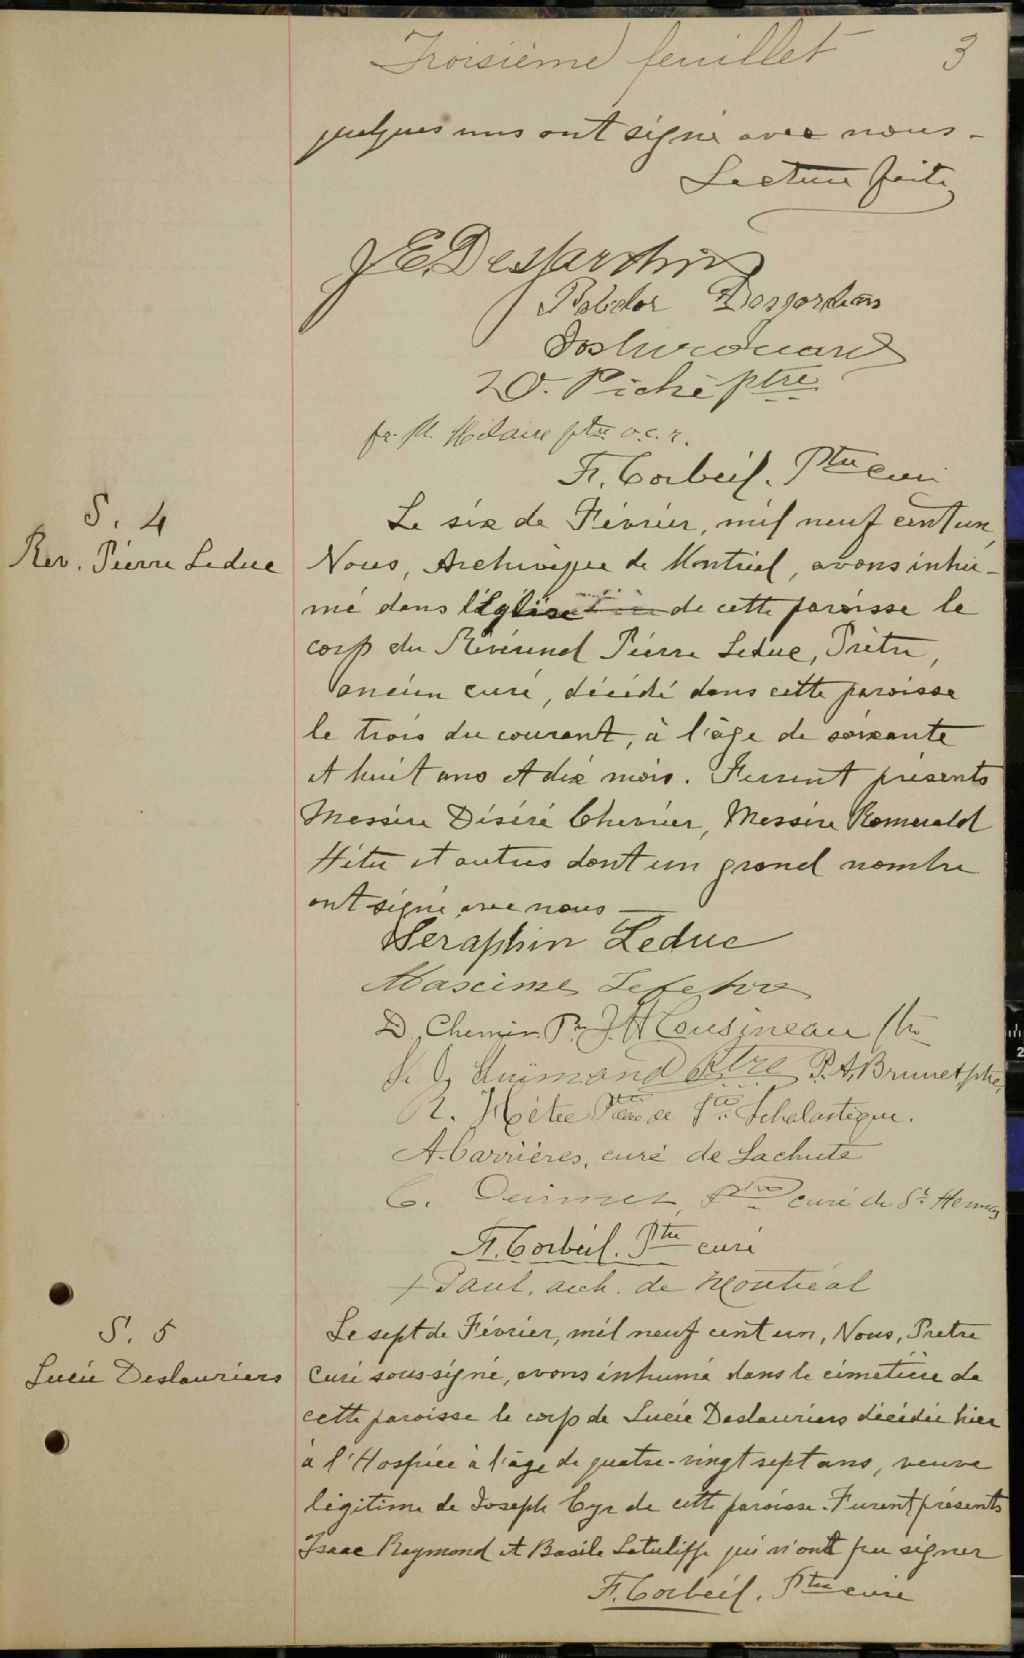 Troisième feuillet 3
quelques uns ont signé avec nous -
Lecture faite
J E. Desjardins
Desjardins
D. Piché ptre
fr. M. Hilaire ptre o.c.r.
F. Corbeil. Ptre curé
S. 4
Rev. Pierre Leduc
Le six de Février, mil neuf cent un,
Nous, Archevêque de Montréal, avons inhu-
mé dans l'Eglise de cette paroisse le
corp du Révérend Pierre Leduc, Prêtre,
ancien curé, décédé dans cette paroisse
le trois du courant, à l'âge de soixante
et huit ans et dix mois. Furent présents
Messire Désiré Chevrier, Messire Romuald
Hétu et autres dont un grand nombre
ont signé avec nous —
Seraphin Leduc
Maxime Lefebvre
D. Chevrier Ptr J. H Cousineau Ptre
Guimond Ptre P. A. Brunet ptre,
R. Hétu Ptre curé de Ste Scholastique.
A. Carrières, curé de Lachute
C. Ouimet, Ptre curé de St Hermas
F. Corbeil. Ptre curé
+ Paul, arch. de Montréal
S. 5
Lucie Deslauriers
Le sept de Février, mil neuf cent un, Nous, Pretre
Curé soussigné, avons inhumé dans le cimetière de
cette paroisse le corp de Lucie Deslauriers décédée hier
à l'Hospice à l'âge de quatre-vingt sept ans, veuve
légitime de Joseph Cyr de cette paroisse. Furent présents
Isaac Raymond et Basile Latulippe qui n'ont pu signer
F. Corbeil. Ptre curé